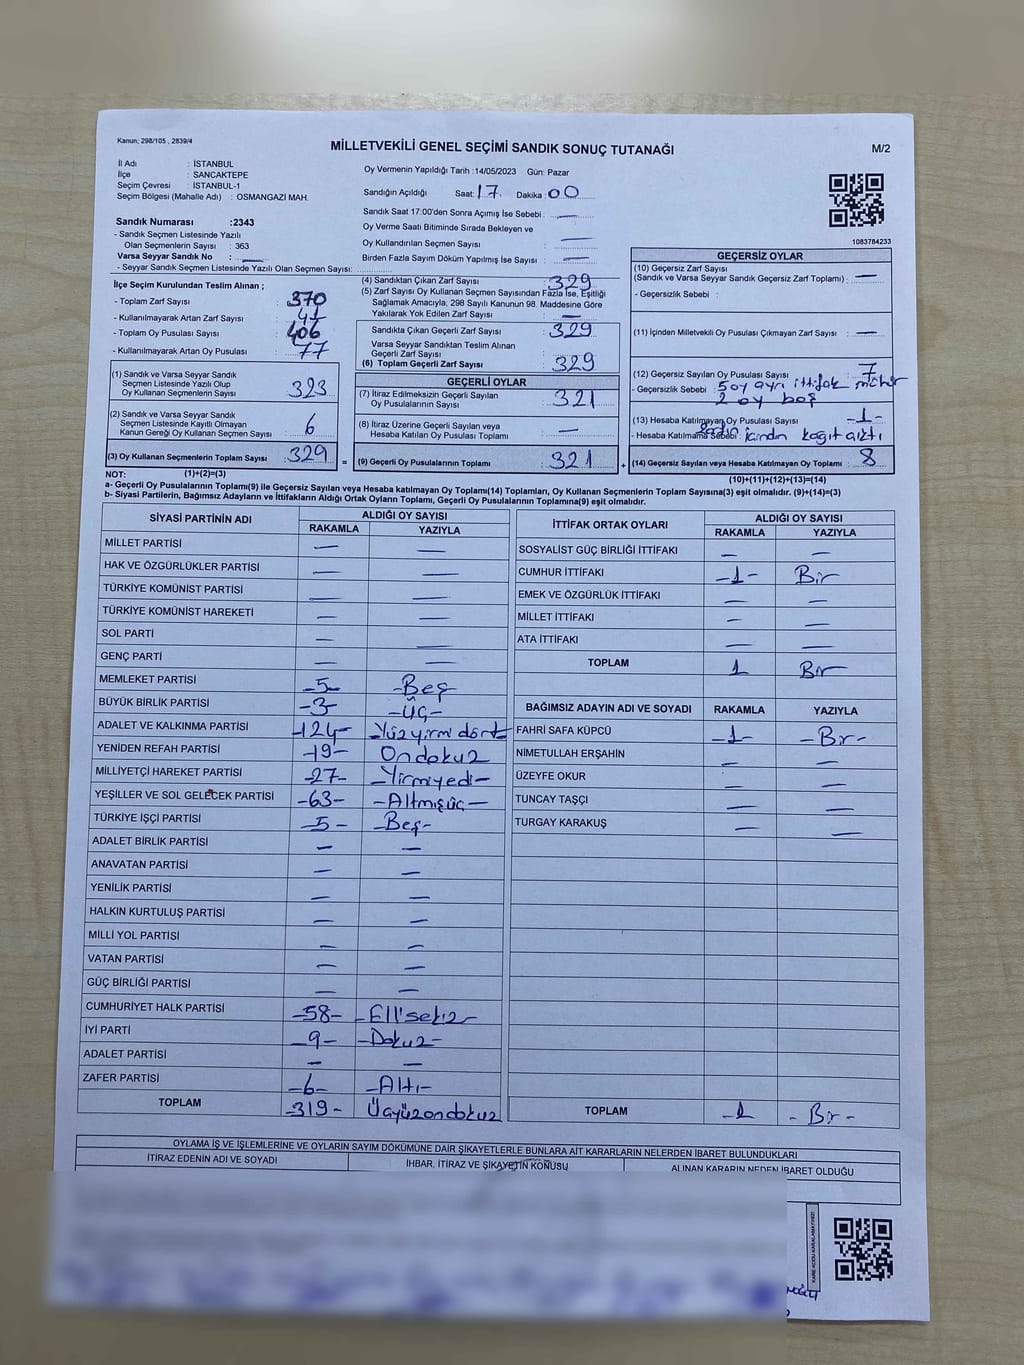 Kanun; 298/105 , 2839/4
MİLLETVEKİLİ GENEL SEÇİMİ SANDIK SONUÇ TUTANAĞI
M/2
İl Adı : İSTANBUL
İlçe : SANCAKTEPE
Seçim Çevresi : İSTANBUL-1
Seçim Bölgesi (Mahalle Adı) : OSMANGAZİ MAH.
Sandık Numarası :2343
- Sandık Seçmen Listesinde Yazılı
Olan Seçmenlerin Sayısı : 363
Varsa Seyyar Sandık No : —
- Seyyar Sandık Seçmen Listesinde Yazılı Olan Seçmen Sayısı:
Oy Vermenin Yapıldığı Tarih :14/05/2023 Gün: Pazar
Sandığın Açıldığı Saat: 17 Dakika: 00
Sandık Saat 17:00'den Sonra Açımış İse Sebebi : —
Oy Verme Saati Bitiminde Sırada Bekleyen ve
Oy Kullandırılan Seçmen Sayısı : —
Birden Fazla Sayım Döküm Yapılmış İse Sayısı : —
1083784233
İlçe Seçim Kurulundan Teslim Alınan ;
- Toplam Zarf Sayısı : 370
- Kullanılmayarak Artan Zarf Sayısı : 41
- Toplam Oy Pusulası Sayısı : 406
- Kullanılmayarak Artan Oy Pusulası : 77
(1) Sandık ve Varsa Seyyar Sandık
Seçmen Listesinde Yazılı Olup
Oy Kullanan Seçmenlerin Sayısı : 323
(2) Sandık ve Varsa Seyyar Sandık
Seçmen Listesinde Kayıtlı Olmayan
Kanun Gereği Oy Kullanan Seçmen Sayısı : 6
(3) Oy Kullanan Seçmenlerin Toplam Sayısı : 329
(4) Sandıktan Çıkan Zarf Sayısı : 329
(5) Zarf Sayısı Oy Kullanan Seçmen Sayısından Fazla İse, Eşitliği
Sağlamak Amacıyla; 298 Sayılı Kanunun 98. Maddesine Göre
Yakılarak Yok Edilen Zarf Sayısı : —
Sandıkta Çıkan Geçerli Zarf Sayısı : 329
Varsa Seyyar Sandıktan Teslim Alınan
Geçerli Zarf Sayısı :
(6) Toplam Geçerli Zarf Sayısı : 329
GEÇERLİ OYLAR
(7) İtiraz Edilmeksizin Geçerli Sayılan
Oy Pusulalarının Sayısı : 321
(8) İtiraz Üzerine Geçerli Sayılan veya
Hesaba Katılan Oy Pusulası Toplamı : —
= (9) Geçerli Oy Pusulalarının Toplamı : 321 +
GEÇERSİZ OYLAR
(10) Geçersiz Zarf Sayısı
(Sandık ve Varsa Seyyar Sandık Geçersiz Zarf Toplamı) : —
- Geçersizlik Sebebi :
(11) İçinden Milletvekili Oy Pusulası Çıkmayan Zarf Sayısı : —
(12) Geçersiz Sayılan Oy Pusulası Sayısı : 7
- Geçersizlik Sebebi : 5 oy ayrı ittifak mühür
2 oy boş
(13) Hesaba Katılmayan Oy Pusulası Sayısı : -1-
- Hesaba Katılmama Sebebi : içinden kağıt çıktı
(14) Geçersiz Sayılan veya Hesaba Katılmayan Oy Toplamı : 8
NOT: (1)+(2)=(3)
(10)+(11)+(12)+(13)=(14)
a- Geçerli Oy Pusulalarının Toplamı(9) ile Geçersiz Sayılan veya Hesaba katılmayan Oy Toplamı(14) Toplamları, Oy Kullanan Seçmenlerin Toplam Sayısına(3) eşit olmalıdır. (9)+(14)=(3)
b- Siyasi Partilerin, Bağımsız Adayların ve İttifakların Aldığı Ortak Oyların Toplamı, Geçerli Oy Pusulalarının Toplamına(9) eşit olmalıdır.
SİYASİ PARTİNİN ADI ALDIĞI OY SAYISI
RAKAMLA YAZIYLA
MİLLET PARTİSİ — —
HAK VE ÖZGÜRLÜKLER PARTİSİ — —
TÜRKİYE KOMÜNİST PARTİSİ — —
TÜRKİYE KOMÜNİST HAREKETİ — —
SOL PARTİ — —
GENÇ PARTİ — —
MEMLEKET PARTİSİ -5- -Beş
BÜYÜK BİRLİK PARTİSİ -3- -Üç-
ADALET VE KALKINMA PARTİSİ -124- -Yüzyirmi dört
YENİDEN REFAH PARTİSİ -19- Ondokuz
MİLLİYETÇİ HAREKET PARTİSİ -27- -Yirmiyedi-
YEŞİLLER VE SOL GELECEK PARTİSİ -63- -Altmışüç-
TÜRKİYE İŞÇİ PARTİSİ -5- -Beş-
ADALET BİRLİK PARTİSİ — —
ANAVATAN PARTİSİ — —
YENİLİK PARTİSİ — —
HALKIN KURTULUŞ PARTİSİ — —
MİLLİ YOL PARTİSİ — —
VATAN PARTİSİ — —
GÜÇ BİRLİĞİ PARTİSİ — —
CUMHURİYET HALK PARTİSİ -58- -Elli sekiz
İYİ PARTİ -9- -Dokuz-
ADALET PARTİSİ — —
ZAFER PARTİSİ -6- -Altı-
TOPLAM -319- Üçyüzondokuz
İTTİFAK ORTAK OYLARI ALDIĞI OY SAYISI
RAKAMLA YAZIYLA
SOSYALİST GÜÇ BİRLİĞİ İTTİFAKI — —
CUMHUR İTTİFAKI -1- Bir
EMEK VE ÖZGÜRLÜK İTTİFAKI — —
MİLLET İTTİFAKI — —
ATA İTTİFAKI — —
TOPLAM 1 Bir
BAĞIMSIZ ADAYIN ADI VE SOYADI RAKAMLA YAZIYLA
FAHRİ SAFA KÜPCÜ -1- -Bir-
NİMETULLAH ERŞAHİN — —
ÜZEYFE OKUR — —
TUNCAY TAŞÇI — —
TURGAY KARAKUŞ — —
TOPLAM -1- -Bir-
OYLAMA İŞ VE İŞLEMLERİNE VE OYLARIN SAYIM DÖKÜMÜNE DAİR ŞİKAYETLERLE BUNLARA AİT KARARLARIN NELERDEN İBARET BULUNDUKLARI
İTİRAZ EDENİN ADI VE SOYADI İHBAR, İTİRAZ VE ŞİKAYETİN KONUSU ALINAN KARARIN NEDEN İBARET OLDUĞU